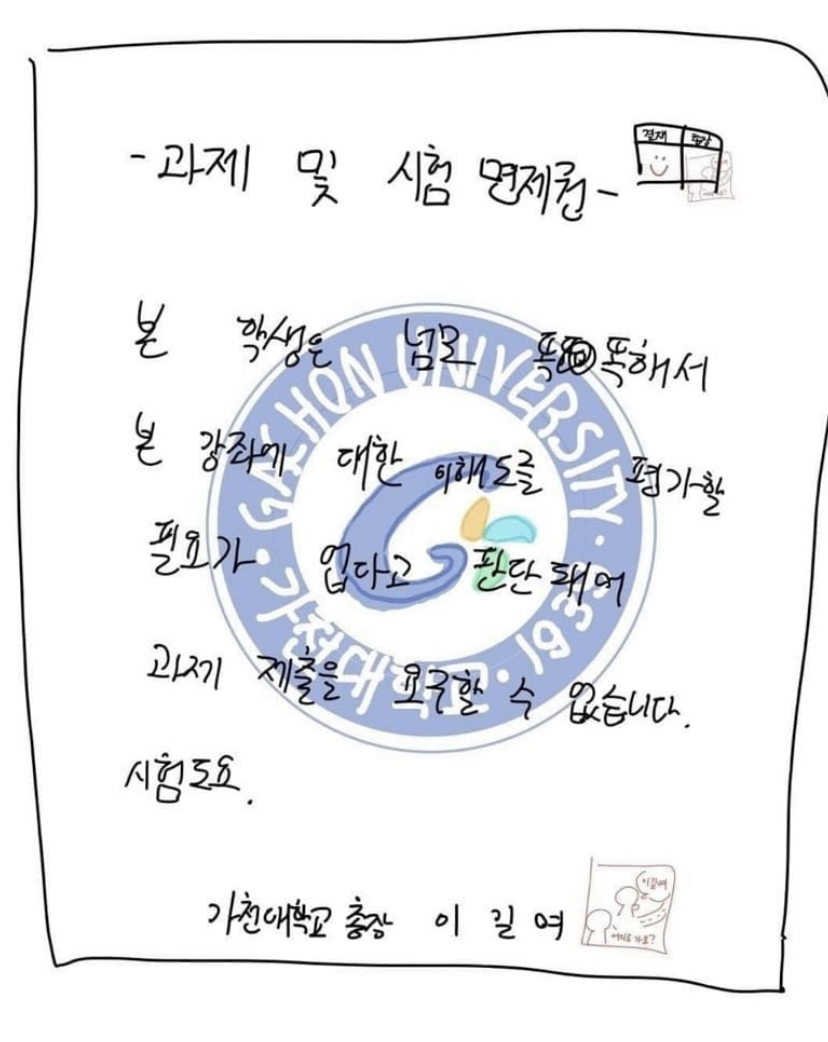 -과제 및 시험 면제권-
결재
총장
본 학생은 넘모 똑똑해서
본 강좌에 대한 이해도를 평가할
필요가 없다고 판단돼어
과제 제출을 요구할 수 없습니다.
시험도요.
GACHON UNIVERSITY · 가천대학교 · 1939
가천대학교 총장 이 길 여
이길여
어디로 가요?